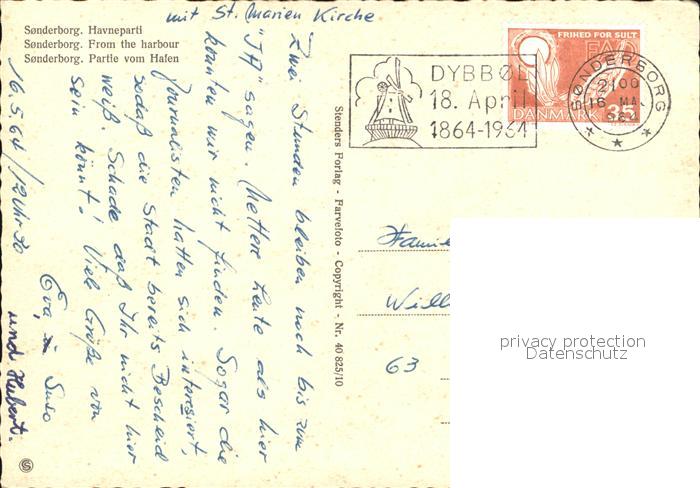 mit St. Marien Kirche
Sønderborg. Havneparti
Sønderborg. From the harbour
Sønderborg. Partie vom Hafen
16.5.64 / 12 Uhr 30
Zwei Stunden bleiben noch bis zum
"JA" sagen. Nettere Leute als hier
konnten wir nicht finden. Sogar die
Journalisten hatten sich interesiert,
sodaß die Stadt bereits Bescheid
weiß. Schade daß Ihr nicht hier
sein könnt! Viele Grüße von
Eva, Suso
und Hubert.
Stenders Forlag - Farvefoto - Copyright - Nr. 40 825/10
DYBBØL
18. April
1864-1964
FRIHED FOR SULT
FAO
DANMARK 35
SØNDERBORG
2100
16 MA
964
Famil
Will
63
privacy protection
Datenschutz